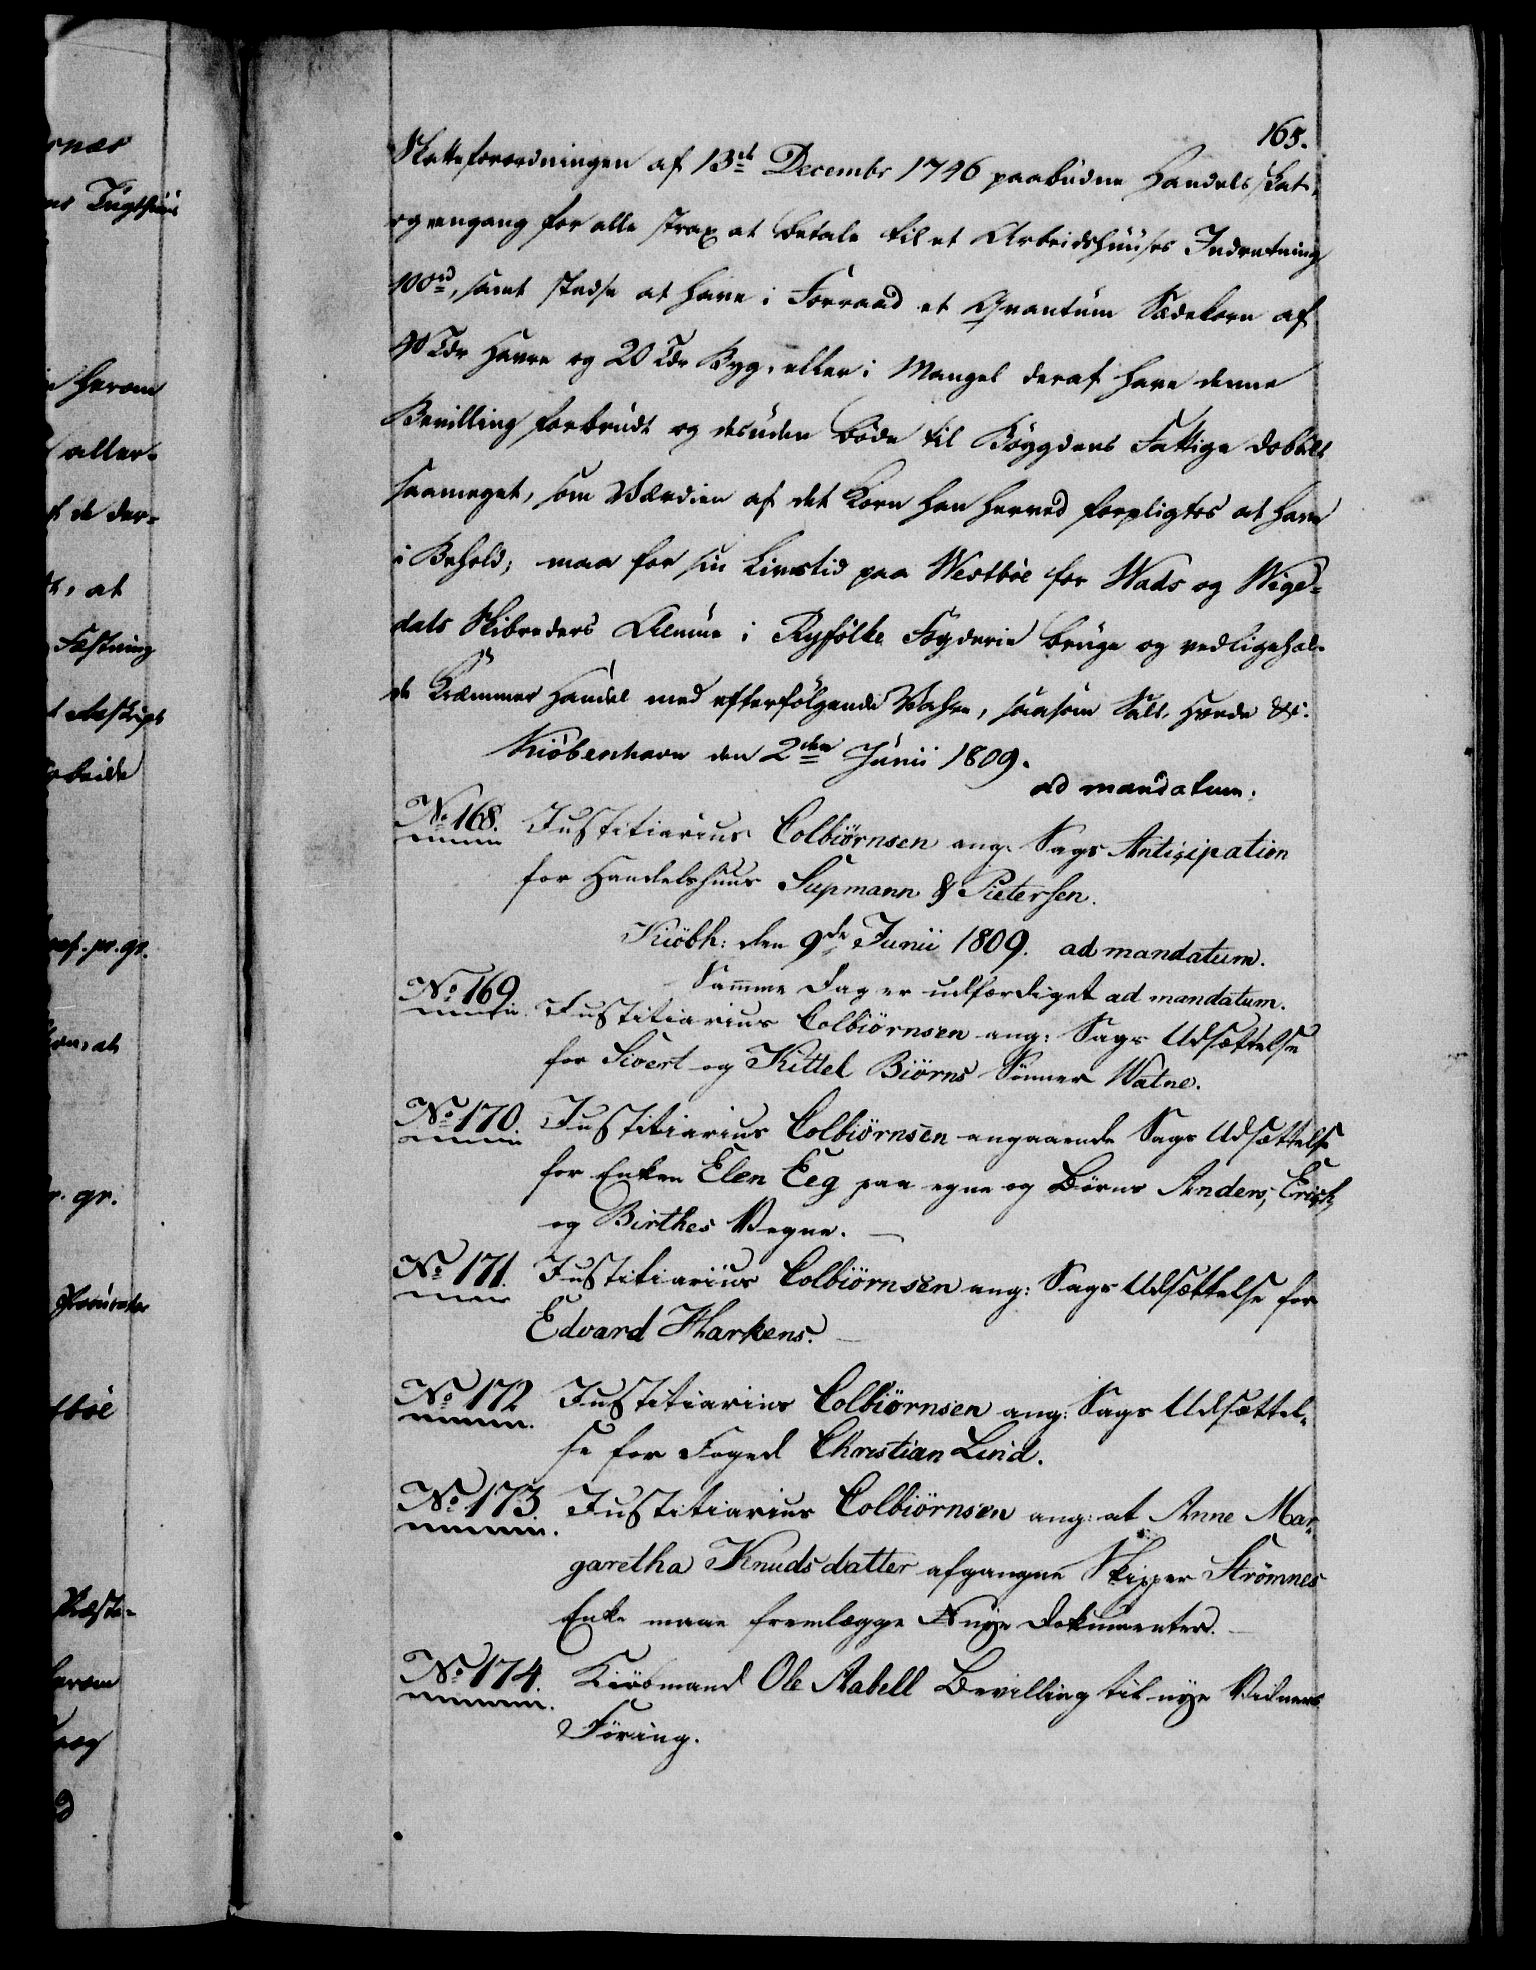 165.
Skatteforordningen af 13de Decembr 1746 paabudne Handels Skat,
og eengang for alle strax at betale til et Arbeidshuuses Indretning
100rd, samt stedse at have i Forraad et Qvantum Sædekorn af
40 Tdr Havre og 20 Tdr Byg, eller i Mangel deraf have denne
Bevilling forbrudt og desuden bøde til Bøygdens Fattige dobbelt
saameget, som Værdien af det Korn han herved forpligtes at have
i Behold; maa for sin Livstid paa Westbøe for Wads og Wige-
dals Skibreders Almue i Ryfölke Fogderie bruge og vedligehol-
de Kræmmer Handel med efterfølgende Vahre, saasom Salt, &c.
Kiøbenhavn den 2den Junii 1809.
ad mandatum.
No 168. Justitiarius Colbiørnsen ang. Sags Anticipation
for Handelshuus Supmann & Pietersen.
Kiöbh: den 9de Junii 1809. ad mandatum.
Samme Dag er udfærdiget ad mandatum.
No 169. Justitiarius Colbiörnsen ang: Sags Udsættelse
for Sivert og Kittel Biörns Sönner Watne.
No 170. Justitiarius Colbiörnsen angaaende Sags Udsættelse
for Enken Elen Eeg paa egne og Börns Anders, Erich,
og Birthes Vegne.
No 171. Justitiarius Colbiörnsen ang: Sags Udsættelse for
Edvard Harkens.
No 172 Justitiarius Colbiörnsen ang: Sags Udsættel-
se for Foged Christian Lind.
No 173. Justitiarius Colbiörnsen ang: at Anne Mar-
garetha Knudsdatter afgangne Skipper Strömnes
Enke maae fremlægge nye Dokumenter.
No 174. Kiöbmand Ole Aabell Bevilling til nye Vidners
Föring.